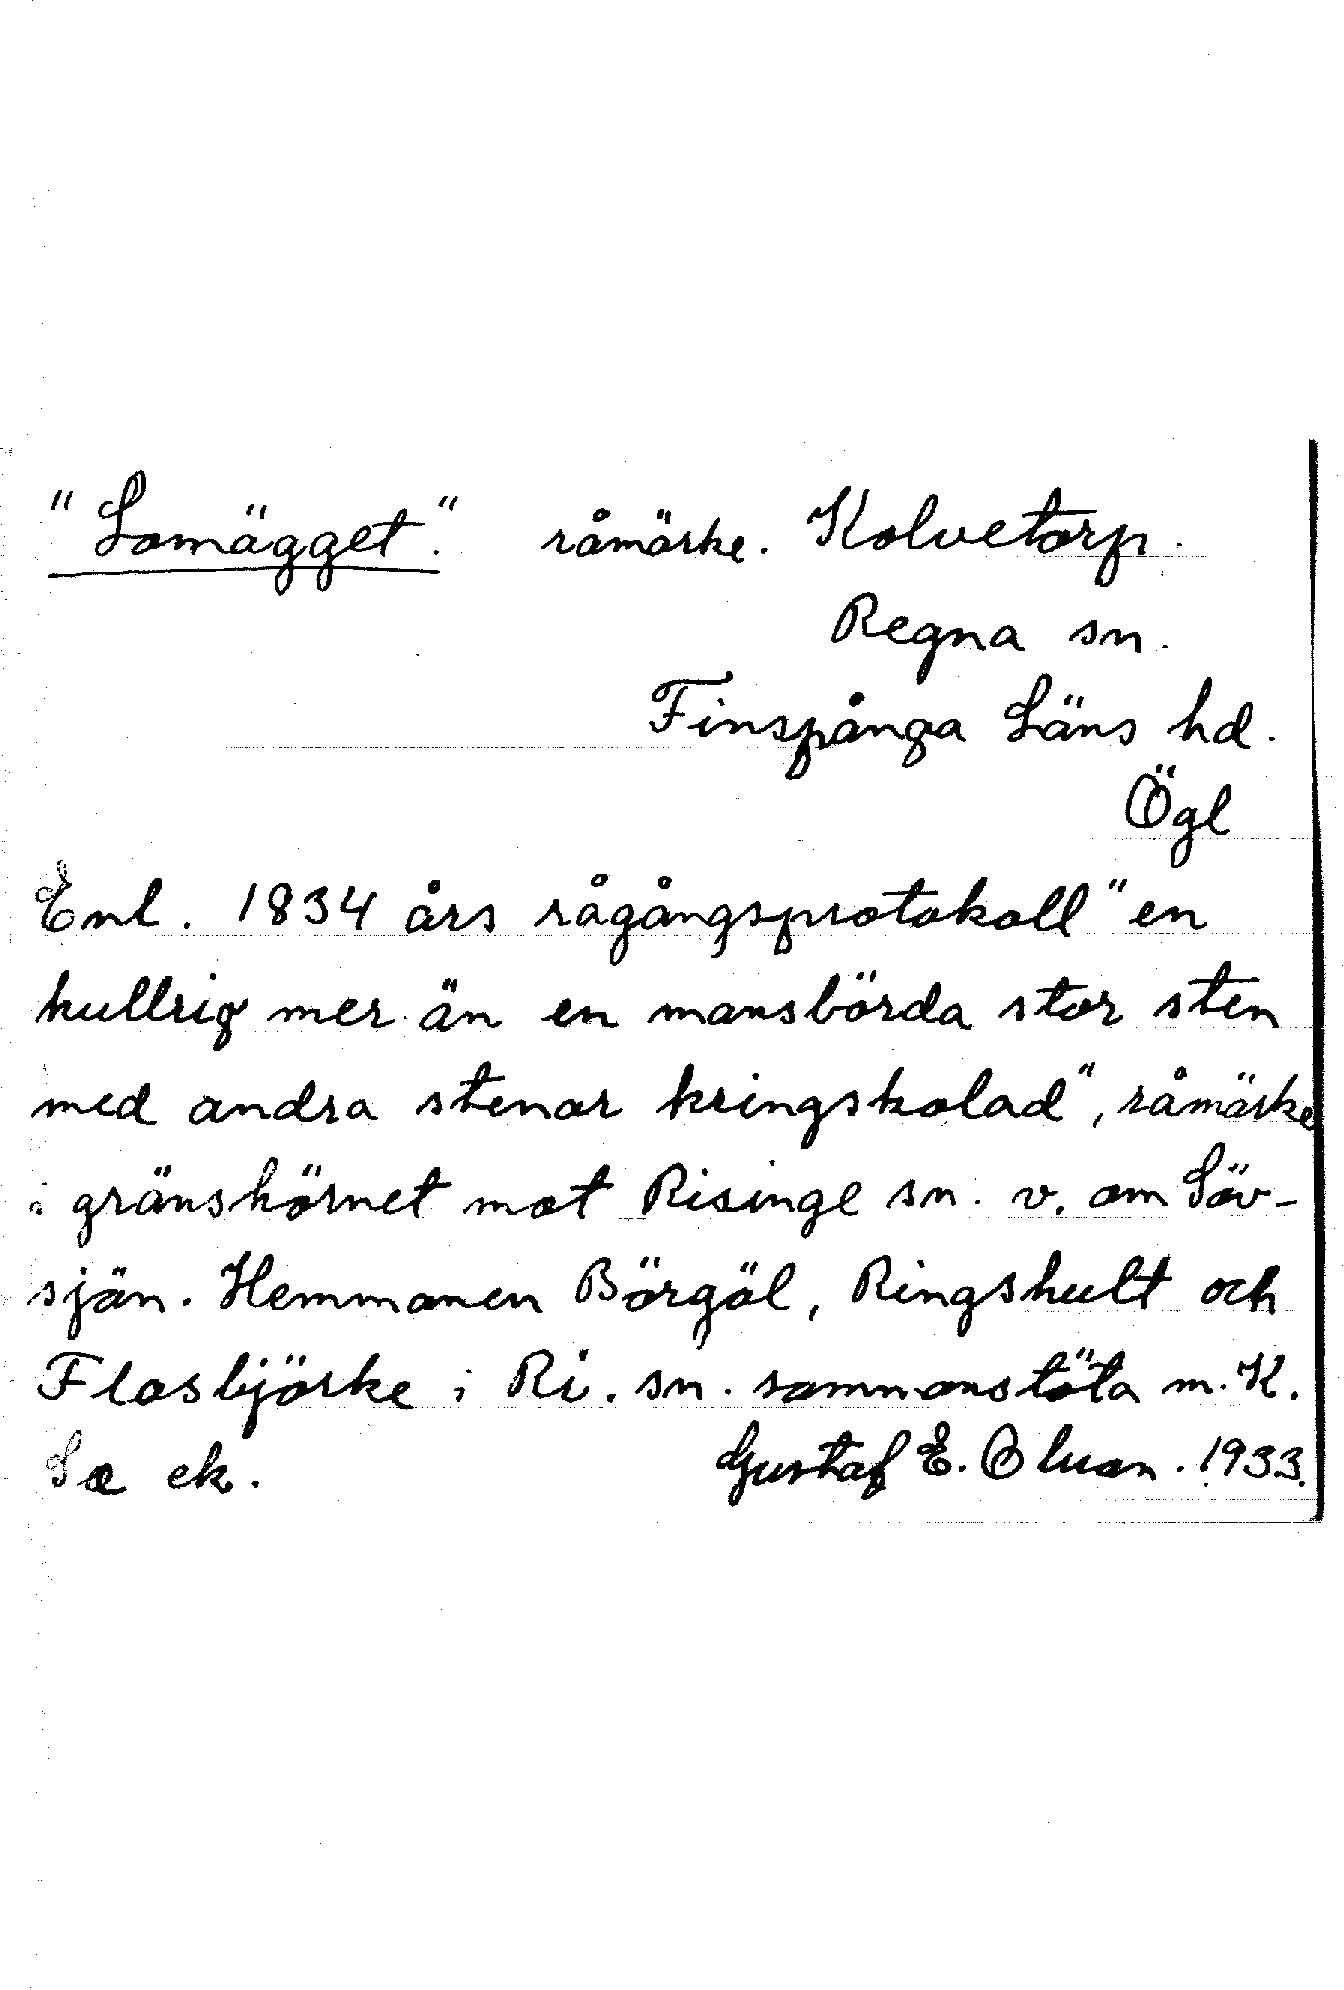 "Lomägget." råmärke. Kolvetorp.
Regna sn.
Finspånga Läns hd.
Ögl
Enl. 1834 års rågångsprotokoll "en
kullrig mer än en mansbörda stor sten
med andra stenar kringskolad", råmärke
i gränshörnet mot Risinge sn. v. om Löv-
sjön. Hemmanen Börgöl, Ringshult och
Flasbjörke i Ri. sn. sammanstöta m. K.
Sæ ek. Gustaf E. Olsson. 1933.